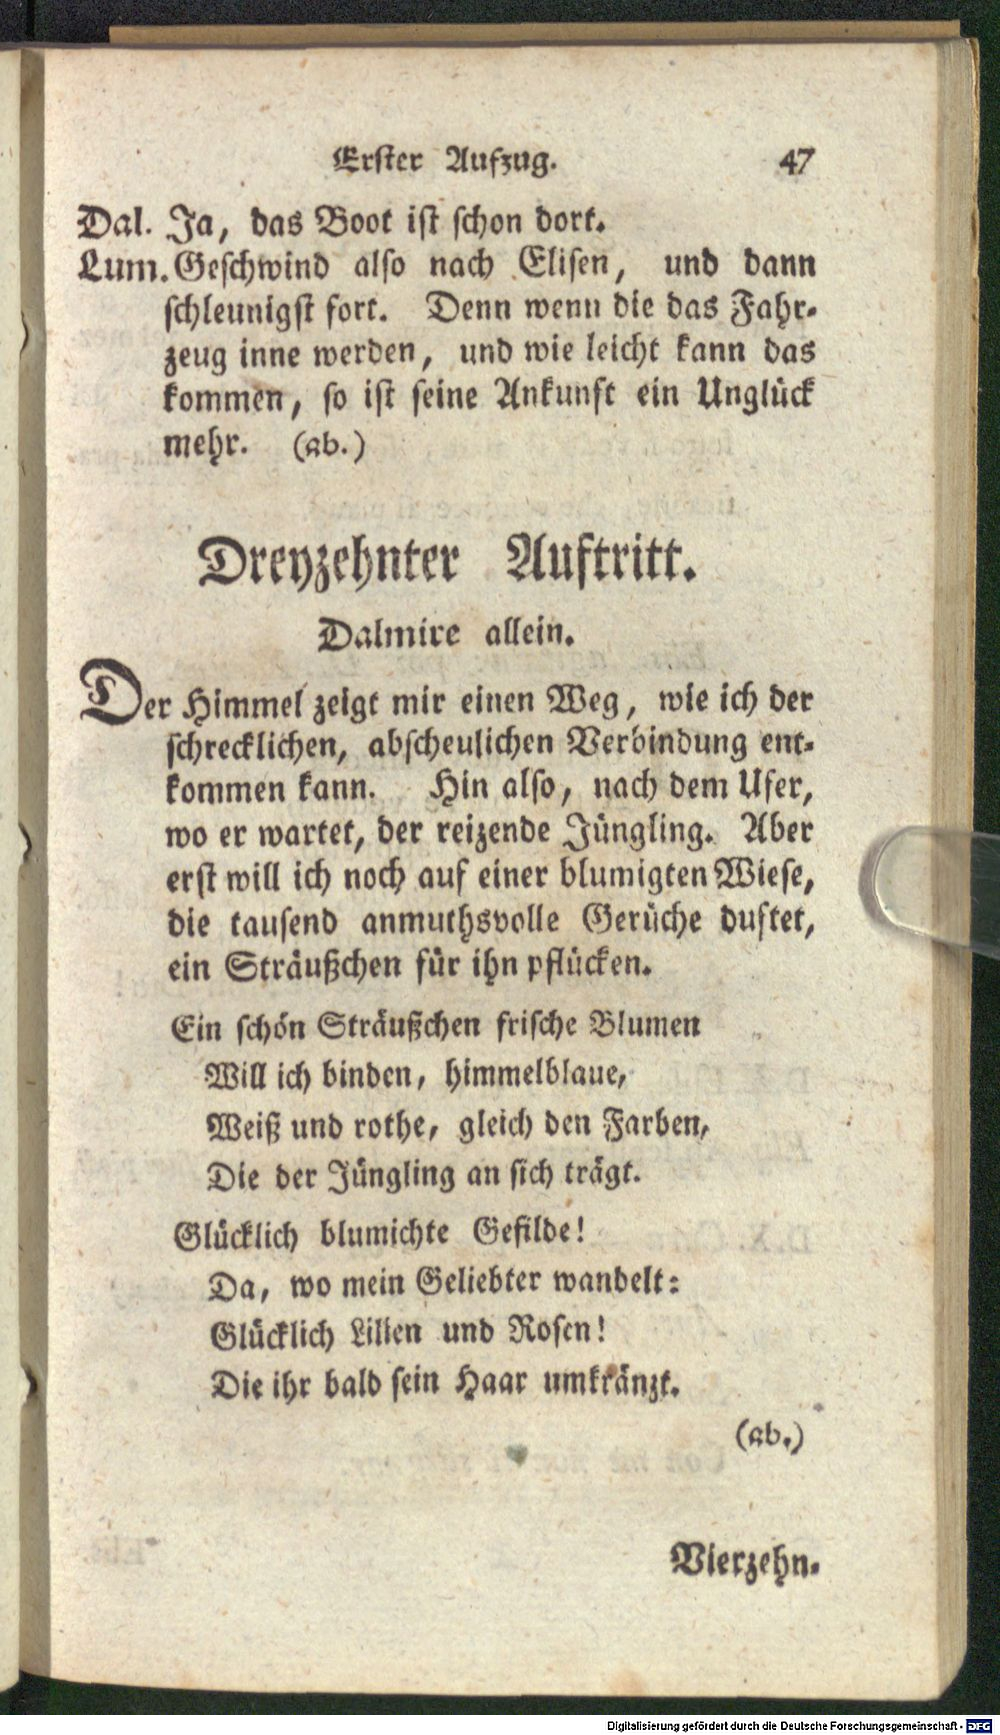 Erster Aufzug. 47
Dal. Ja, das Boot ist schon dort.
Lum. Geschwind also nach Elisen, und dann
schleunigst fort. Denn wenn die das Fahr-
zeug inne werden, und wie leicht kann das
kommen, so ist seine Ankunft ein Unglück
mehr. (ab.)
Dreyzehnter Auftritt.
Dalmire allein.
Der Himmel zeigt mir einen Weg, wie ich der
schrecklichen, abscheulichen Verbindung ent-
kommen kann. Hin also, nach dem Ufer,
wo er wartet, der reizende Jüngling. Aber
erst will ich noch auf einer blumigten Wiese,
die tausend anmuthsvolle Gerüche duftet,
ein Sträußchen für ihn pflücken.
Ein schön Sträußchen frische Blumen
Will ich binden, himmelblaue,
Weiß und rothe, gleich den Farben,
Die der Jüngling an sich trägt.
Glücklich blumichte Gefilde!
Da, wo mein Geliebter wandelt:
Glücklich Lilien und Rosen!
Die ihr bald sein Haar umkränzt.
(ab.)
Vierzehn-
Digitalisierung gefördert durch die Deutsche Forschungsgemeinschaft - DFG